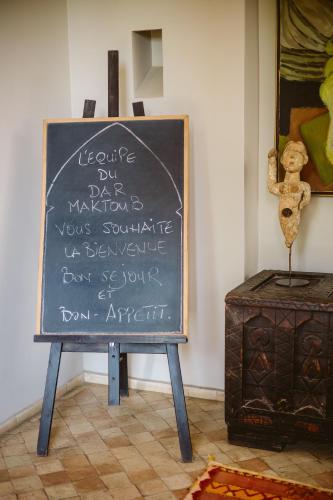 L'EQUIPE
DU
DAR
MAKTOUB
VOUS SOUHAITE
LA BIENVENUE
BON SEJOUR
ET
BON-APPETIT.